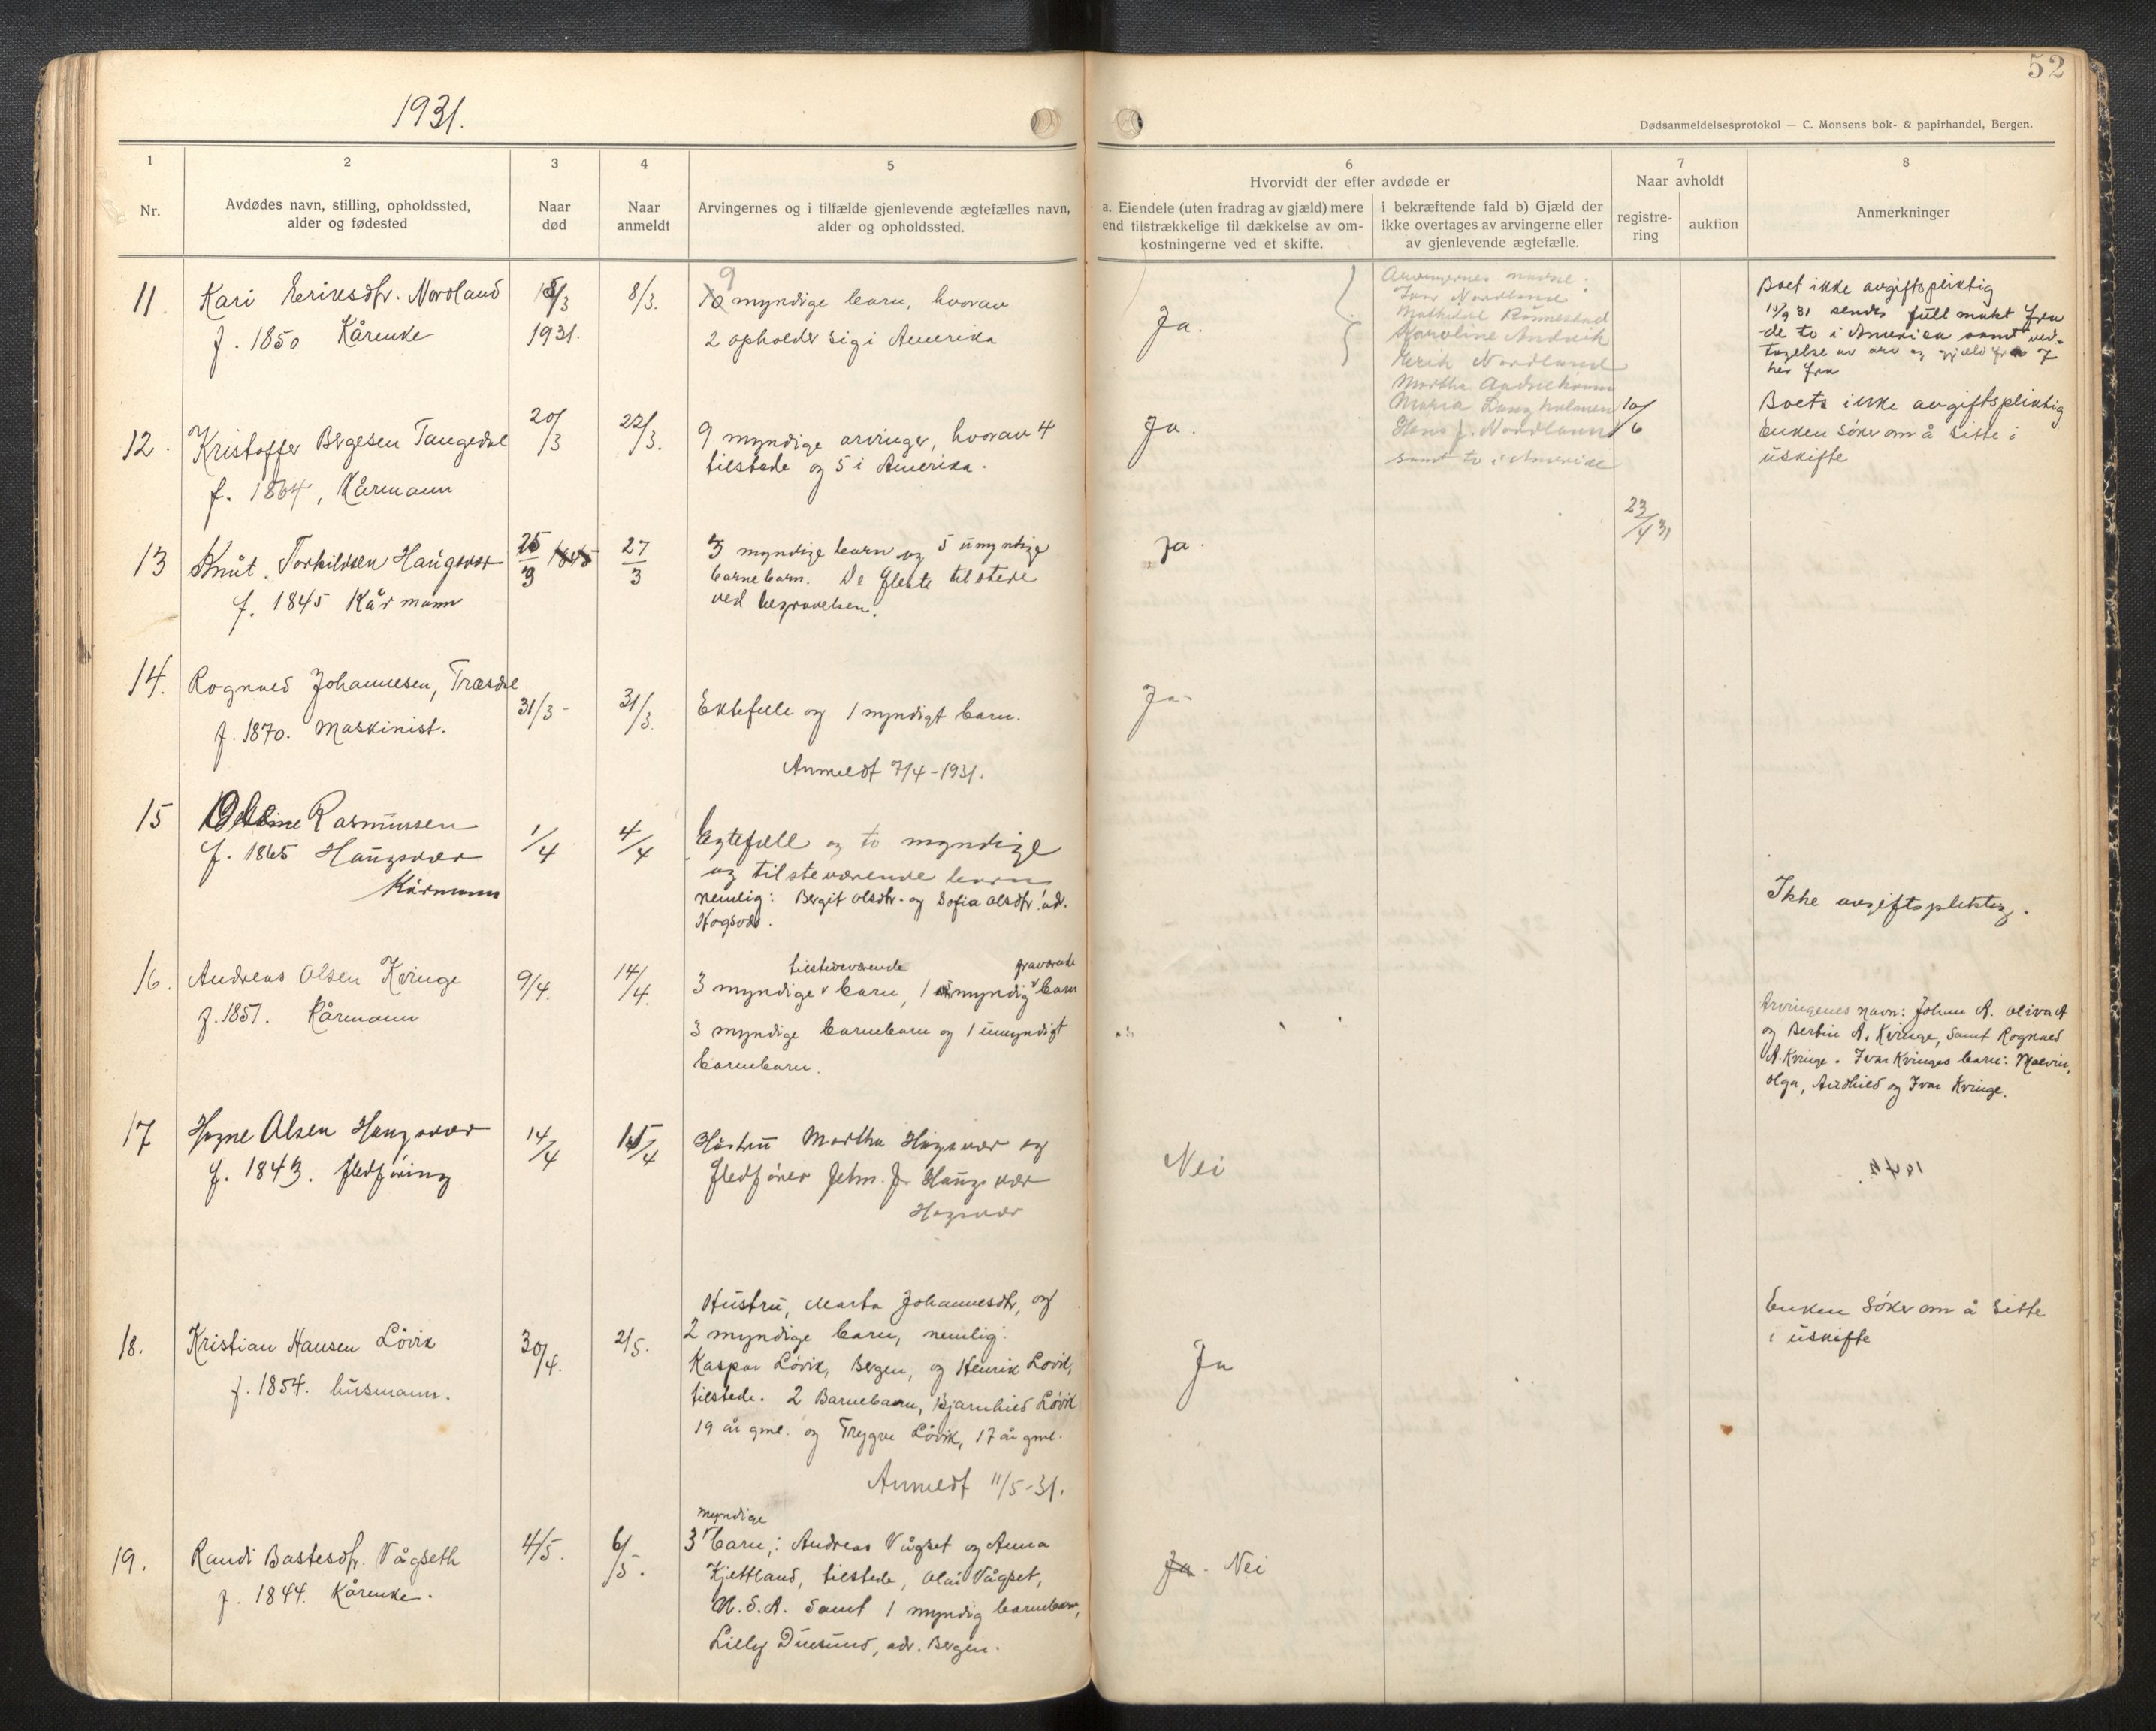 1931.
52
Dødsanmeldelsesprotokol — C. Monsens bok- & papirhandel, Bergen.
1
Nr.
2
Avdødes navn, stilling, opholdssted,
alder og fødested
3
Naar
død
4
Naar
anmeldt
5
Arvingernes og i tilfælde gjenlevende ægtefælles navn,
alder og opholdssted.
6
Hvorvidt der efter avdøde er
a. Eiendele (uten fradrag av gjæld) mere
end tilstrækkelige til dækkelse av om-
kostningerne ved et skifte.
i bekræftende fald b) Gjæld der
ikke overtages av arvingerne eller
av gjenlevende ægtefælle.
7
Naar avholdt
registre-
ring
auktion
8
Anmerkninger
11
Kari Eriksdtr. Nordland
f. 1850 Kårenke
8/3
1931.
8/3.
9
myndige barn, hvorav
2 opholder sig i Amerika
Ja.
Arvingernes navne:
Ivar Nordland
Mathilde Rønnestad
Karoline Andvik
Erik Nordland
Martha
Maria Langholmen
Hans J. Nordland
samt to i Amerika
Boet ikke avgiftspliktig
15/9 31 sendes full makt fra
de to i Amerika samt ved-
tagelse av arv og gjæld fra 7
her fra
12.
Kristoffer Bergesen Tangedal
f. 1864, Kårmann
20/3
22/3.
9 myndige arvinger, hvorav 4
tilstede og 5 i Amerika.
Ja.
10/6
Boets ikke avgiftspliktig
Enken søker om å sitte i
uskifte
13
Knut Torkildsen Haugsvær
f. 1845 Kårmann
25/3 1845
27/3
3 myndige barn og 5 umyndige
barnebarn. De fleste tilstede
ved begravelsen.
Ja.
23/4 31
14.
Rognald Johannesen, Træsdal
f. 1870. Maskinist.
31/3-
31/3.
Ektefelle og 1 myndigt barn.
Anmeldt 7/4-1931.
Ja-
15
Rasmussen
f. 1865 Haugsvær
Kårmann
1/4
4/4
Egtefelle og to myndige
og tilsteværende barn
nemlig: Bergit Olsdtr. og Sofia Olsdtr. ad.
Hogsvær.
Ikke avgiftspliktig.
16.
Andreas Olsen Kvinge
f. 1857. Kårmann
9/4.
14/4.
tilstedeværende fraværende
3 myndige barn, 1 myndig barn
3 myndige barnebarn og 1 umyndigt
barnebarn.
Arvingenes navn: Johan A. Oliva A
og Bertin A. Kvinge, samt Rognald
A. Kvinge. Ivar Kvinges barn: Malvin,
Olga, Audhild og Ivar Kvinge.
17
Hogne Olsen Haugsvær
f. 1843. fledføring
14/4
15/4
Hustru Martha Hogsvær og
fledfører Johm. J. Haugsvær
Hogsvær
Nei
18.
Kristian Hansen Løvik
f. 1854. husmann.
30/4.
2/5.
Hustru, Marta Johannesdtr, og
2 myndige barn, nemlig:
Kaspar Løvik, Bergen, og Henrik Løvik,
tilstede. 2 Barnebarn, Bjarnhild Løvik
19 år gml. og Trygve Løvik, 17 år gml.
Anmeldt 11/5-31.
Ja
Enken søker om å sitte
i uskifte
19.
Randi Bastesdtr. Vågseth
f. 1844. Kårenke.
4/5.
6/5.
myndige
3 barn,: Andreas Vågset og Anna
Kjettland, tilstede, Olai Vågset,
U.S.A. samt 1 myndig barnebarn,
Lilly Duesund, adr. Bergen.
Ja. Nei